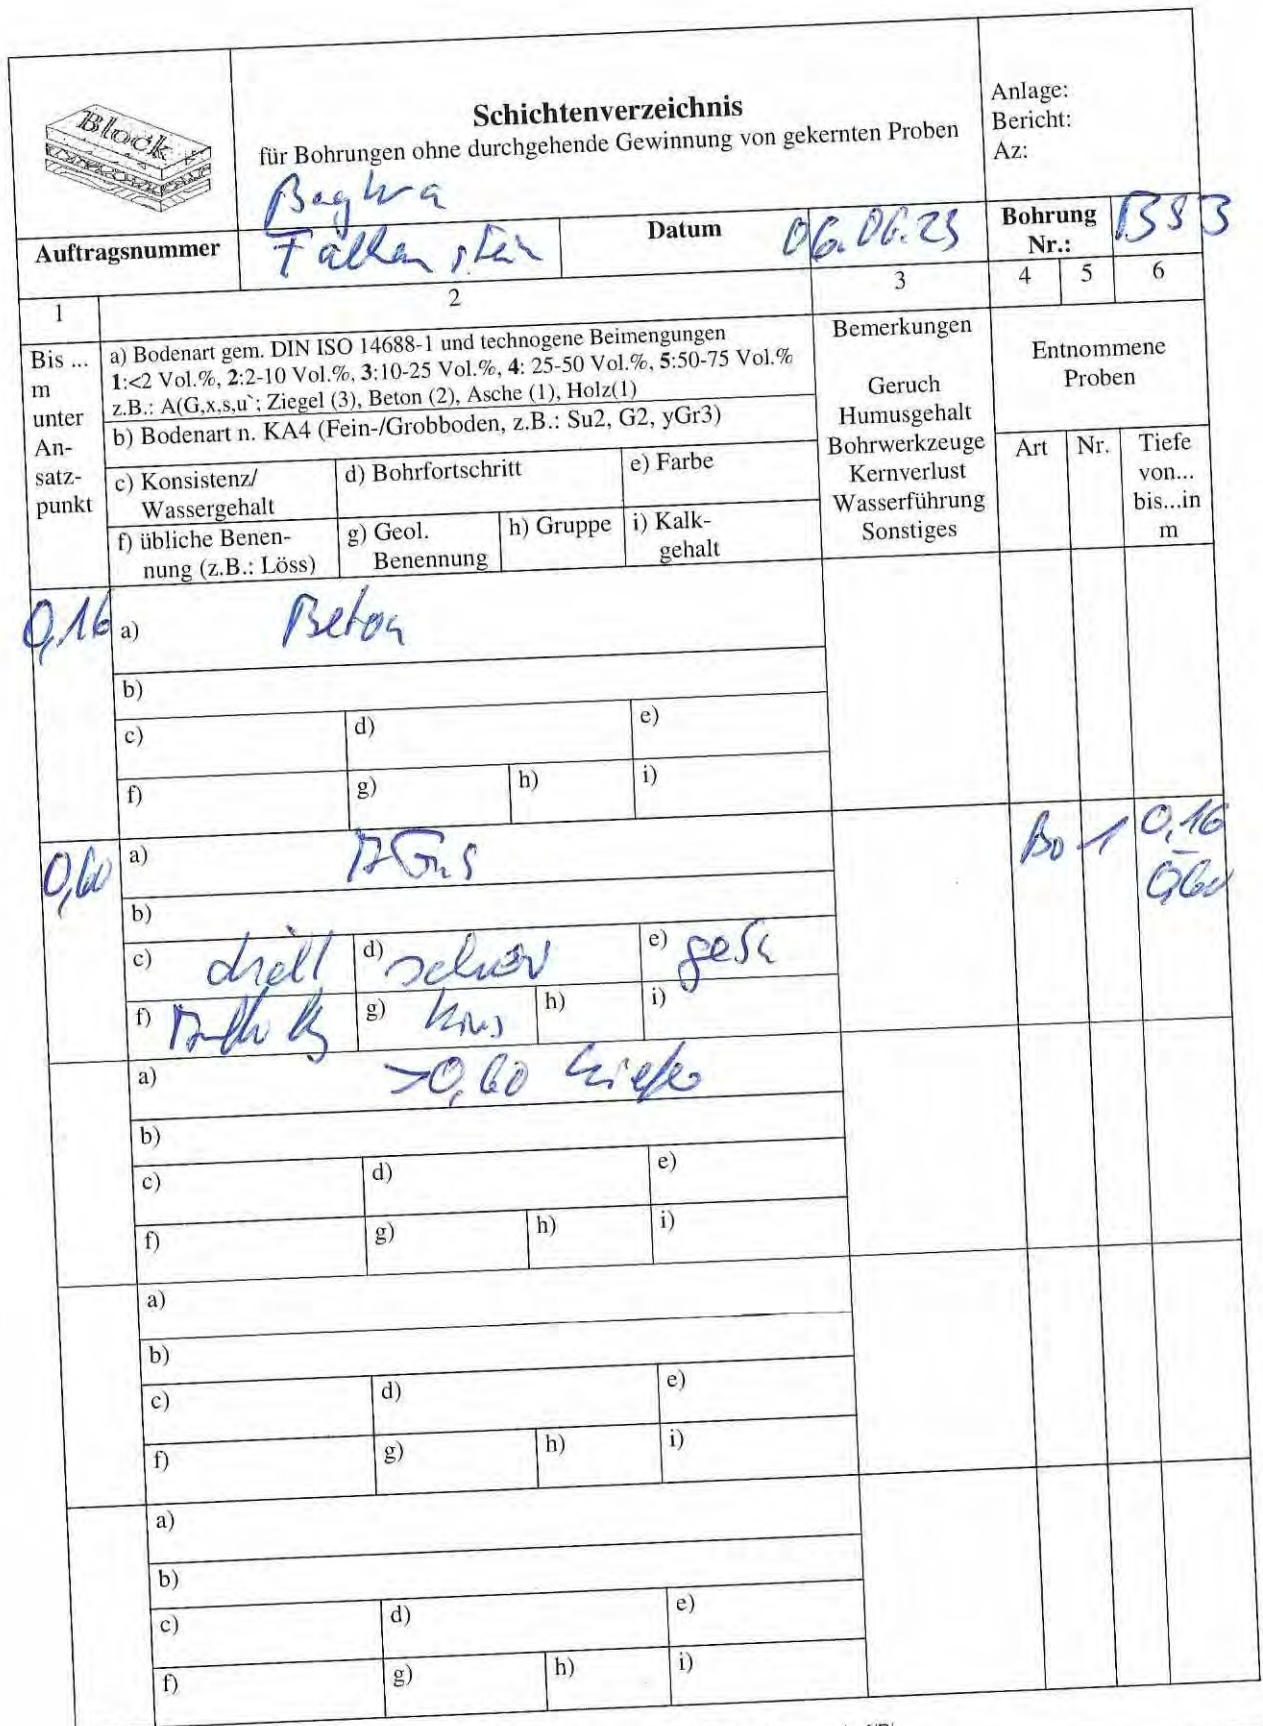 Block
Schichtenverzeichnis
für Bohrungen ohne durchgehende Gewinnung von gekernten Proben
Anlage:
Bericht:
Az:
Auftragsnummer
Falkenstein
Datum
06.06.23
Bohrung
Nr.:
BS 3
1
2
3
4
5
6
Bis ...
m
unter
An-
satz-
punkt
a) Bodenart gem. DIN ISO 14688-1 und technogene Beimengungen
1:<2 Vol.%, 2:2-10 Vol.%, 3:10-25 Vol.%, 4: 25-50 Vol.%, 5:50-75 Vol.%
z.B.: A(G,x,s,u`; Ziegel (3), Beton (2), Asche (1), Holz(1)
b) Bodenart n. KA4 (Fein-/Grobboden, z.B.: Su2, G2, yGr3)
c) Konsistenz/
Wassergehalt
d) Bohrfortschritt
e) Farbe
f) übliche Benen-
nung (z.B.: Löss)
g) Geol.
Benennung
h) Gruppe
i) Kalk-
gehalt
Bemerkungen
Geruch
Humusgehalt
Bohrwerkzeuge
Kernverlust
Wasserführung
Sonstiges
Entnommene
Proben
Art
Nr.
Tiefe
von...
bis...in
m
0,16
a) Beton
b)
c)
d)
e)
f)
g)
h)
i)
0,60
a)
b)
c)
d) schwer
e)
f)
g)
h)
i)
Bo
1
0,16
-
0,60
a) >0,60
b)
c)
d)
e)
f)
g)
h)
i)
a)
b)
c)
d)
e)
f)
g)
h)
i)
a)
b)
c)
d)
e)
f)
g)
h)
i)